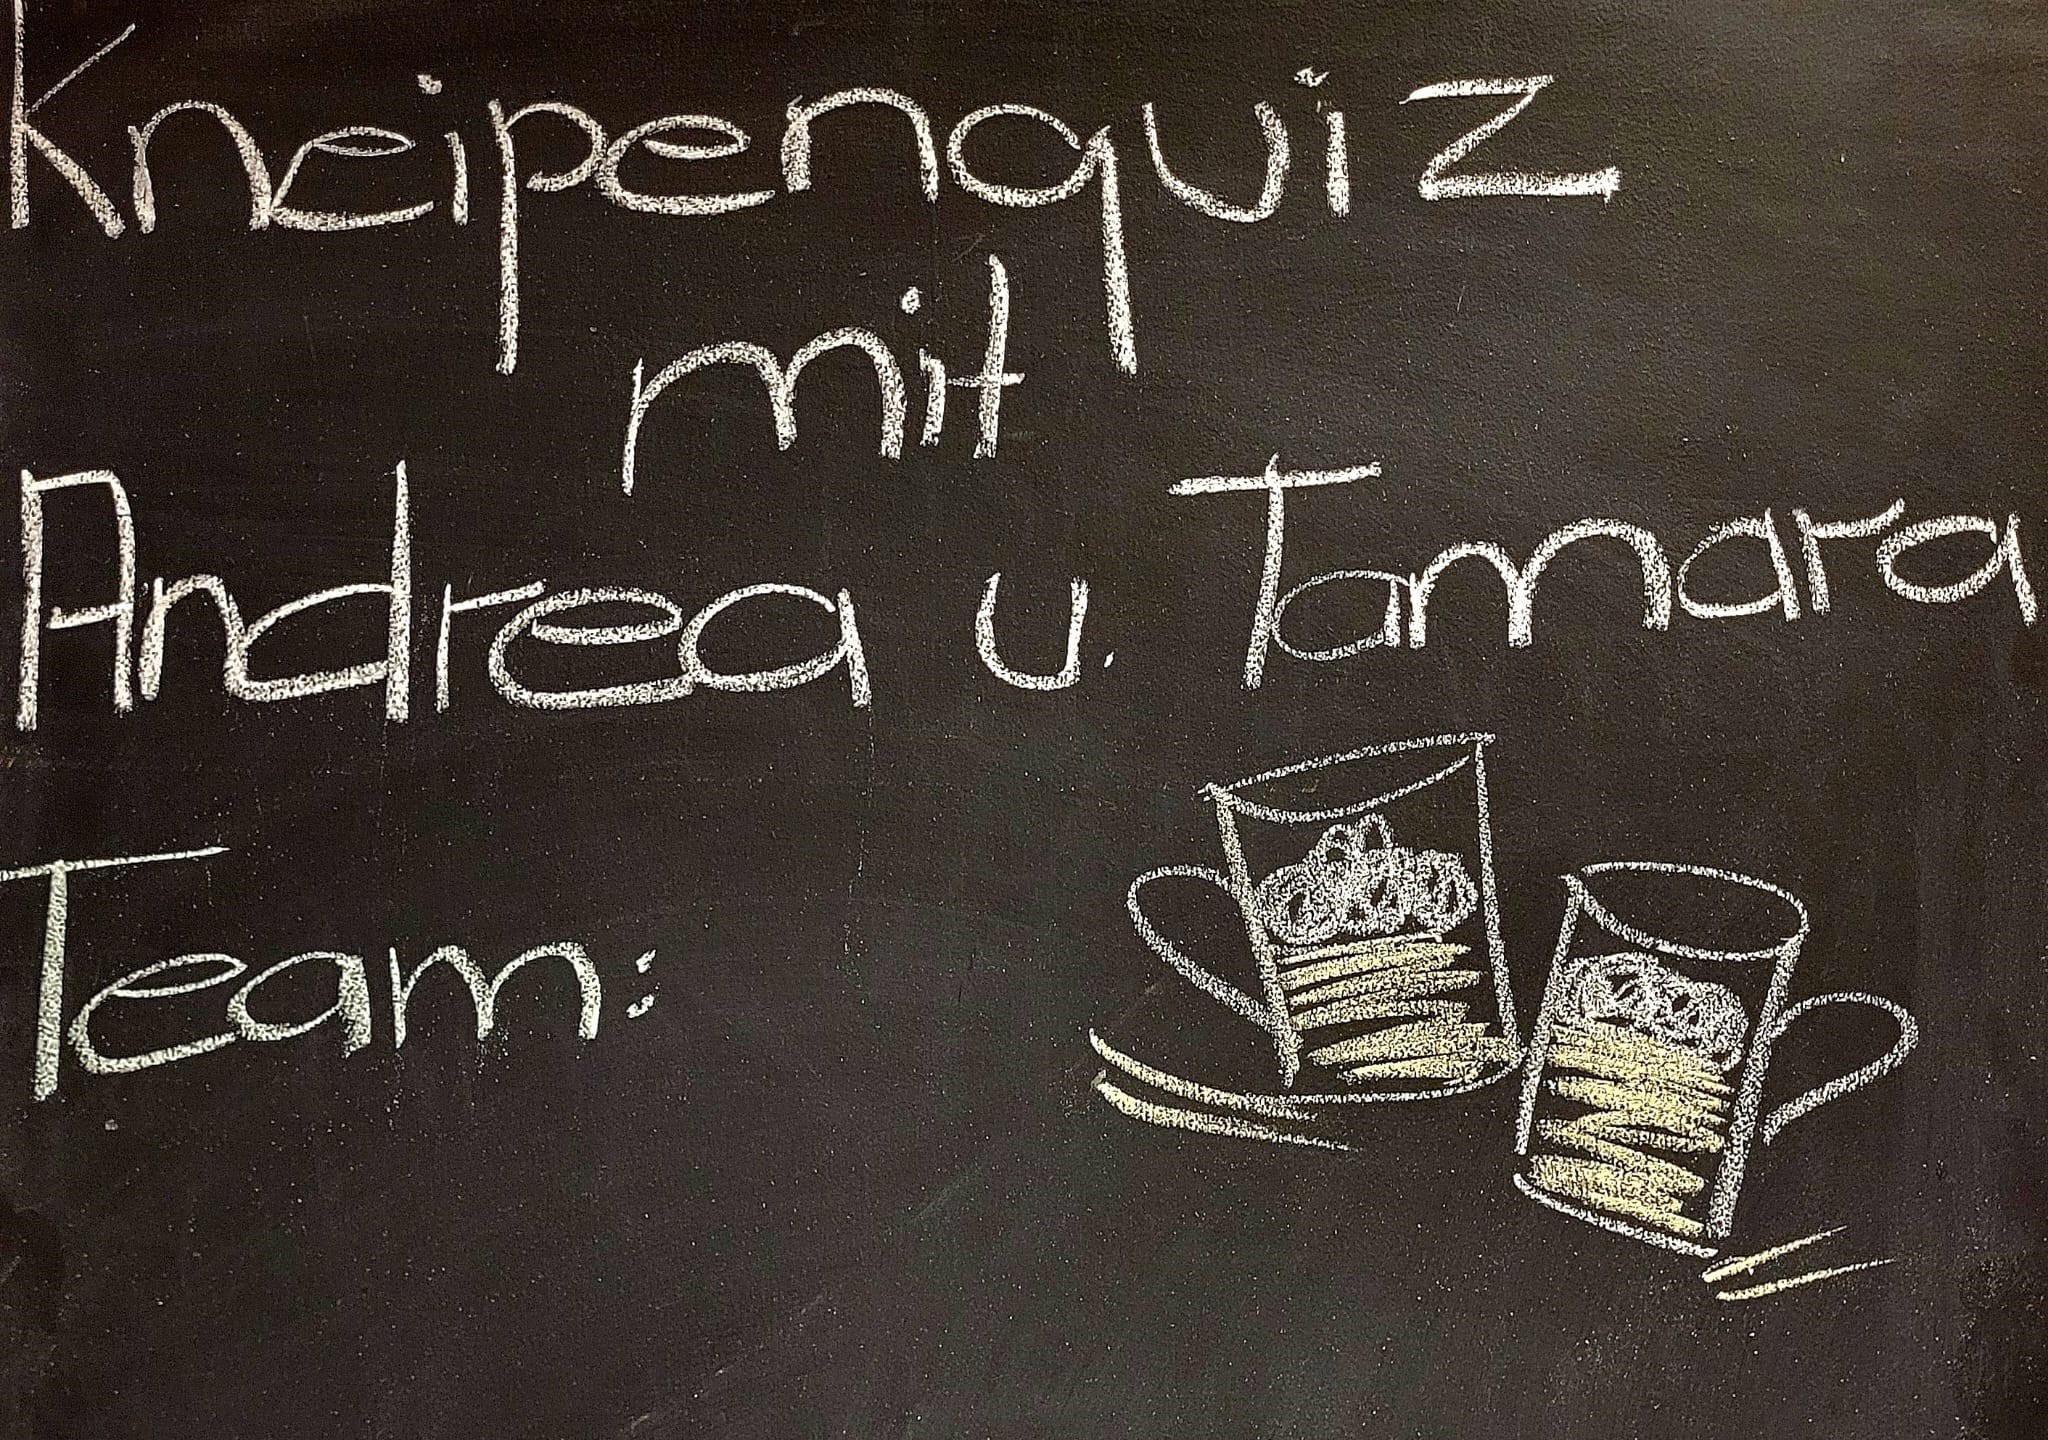 Kneipenquiz
mit
Andrea u. Tamara
Team: